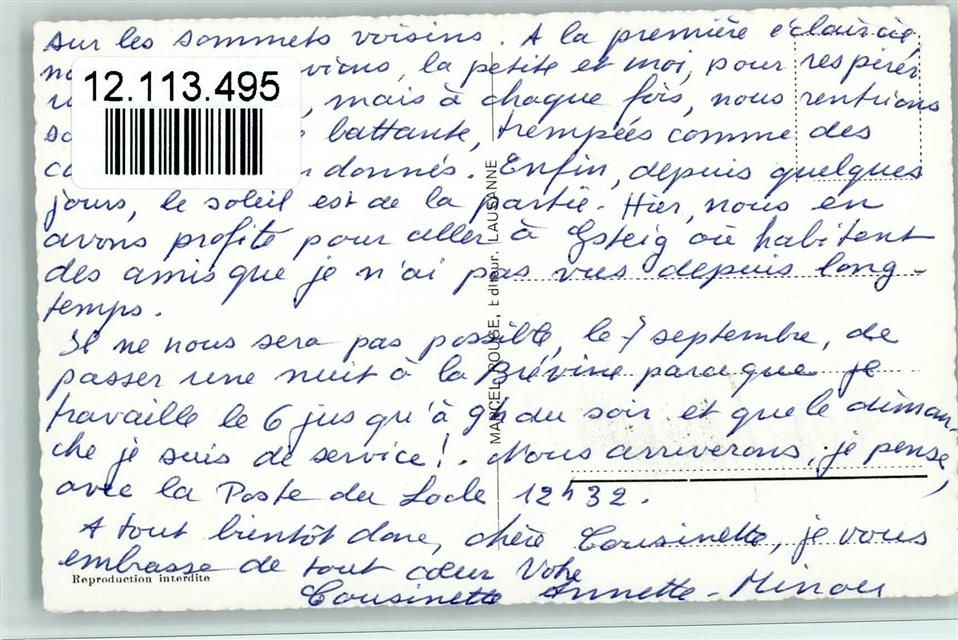 sur les sommets voisins. A la première éclaircie
la petite et moi, pour respirer
12.113.495
, mais à chaque fois, nous rentrions
battante, trempées comme des
donnés. Enfin, depuis quelques
jours, le soleil est de la partie. Hier, nous en
avons profité pour aller à Gsteig où habitent
des amis que je n'ai pas vus depuis long-
temps.
Il ne nous sera pas possible, le 7 septembre, de
passer une nuit à la Brévine parce que je
travaille le 6 jusqu'à 9h du soir et que le diman-
che je suis de service!. Nous arriverons, je pense,
avec la Poste du Locle 12h32.
A tout bientôt donc, chère Cousinette, je vous
embrasse de tout cœur Votre
Cousinette Annette-Minou
Reproduction interdite
MARCEL ROUGE, Editeur. LAUSANNE